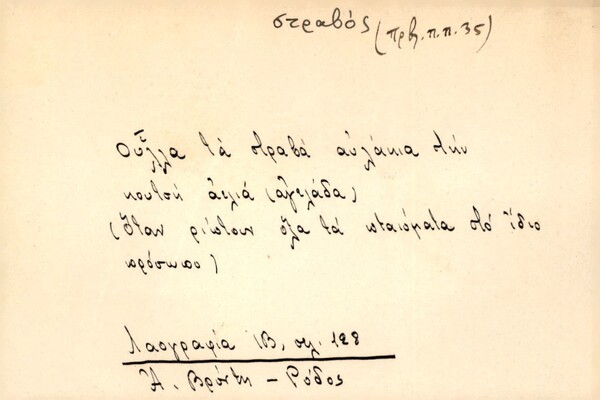 στραβός (πρβ. π.π. 35)
Οὖλλα τὰ στραβὰ αὐλάκια στὴν
κουτσὴ ἀελιά (ἀγελάδα)
(Ὅταν ρίχτουν ὅλα τὰ πταίσματα στὸ ἴδιο
πρόσωπο)
Λαογραφία ΙΒ, σελ. 128
Ἀ. Βρόντη - Ρόδος